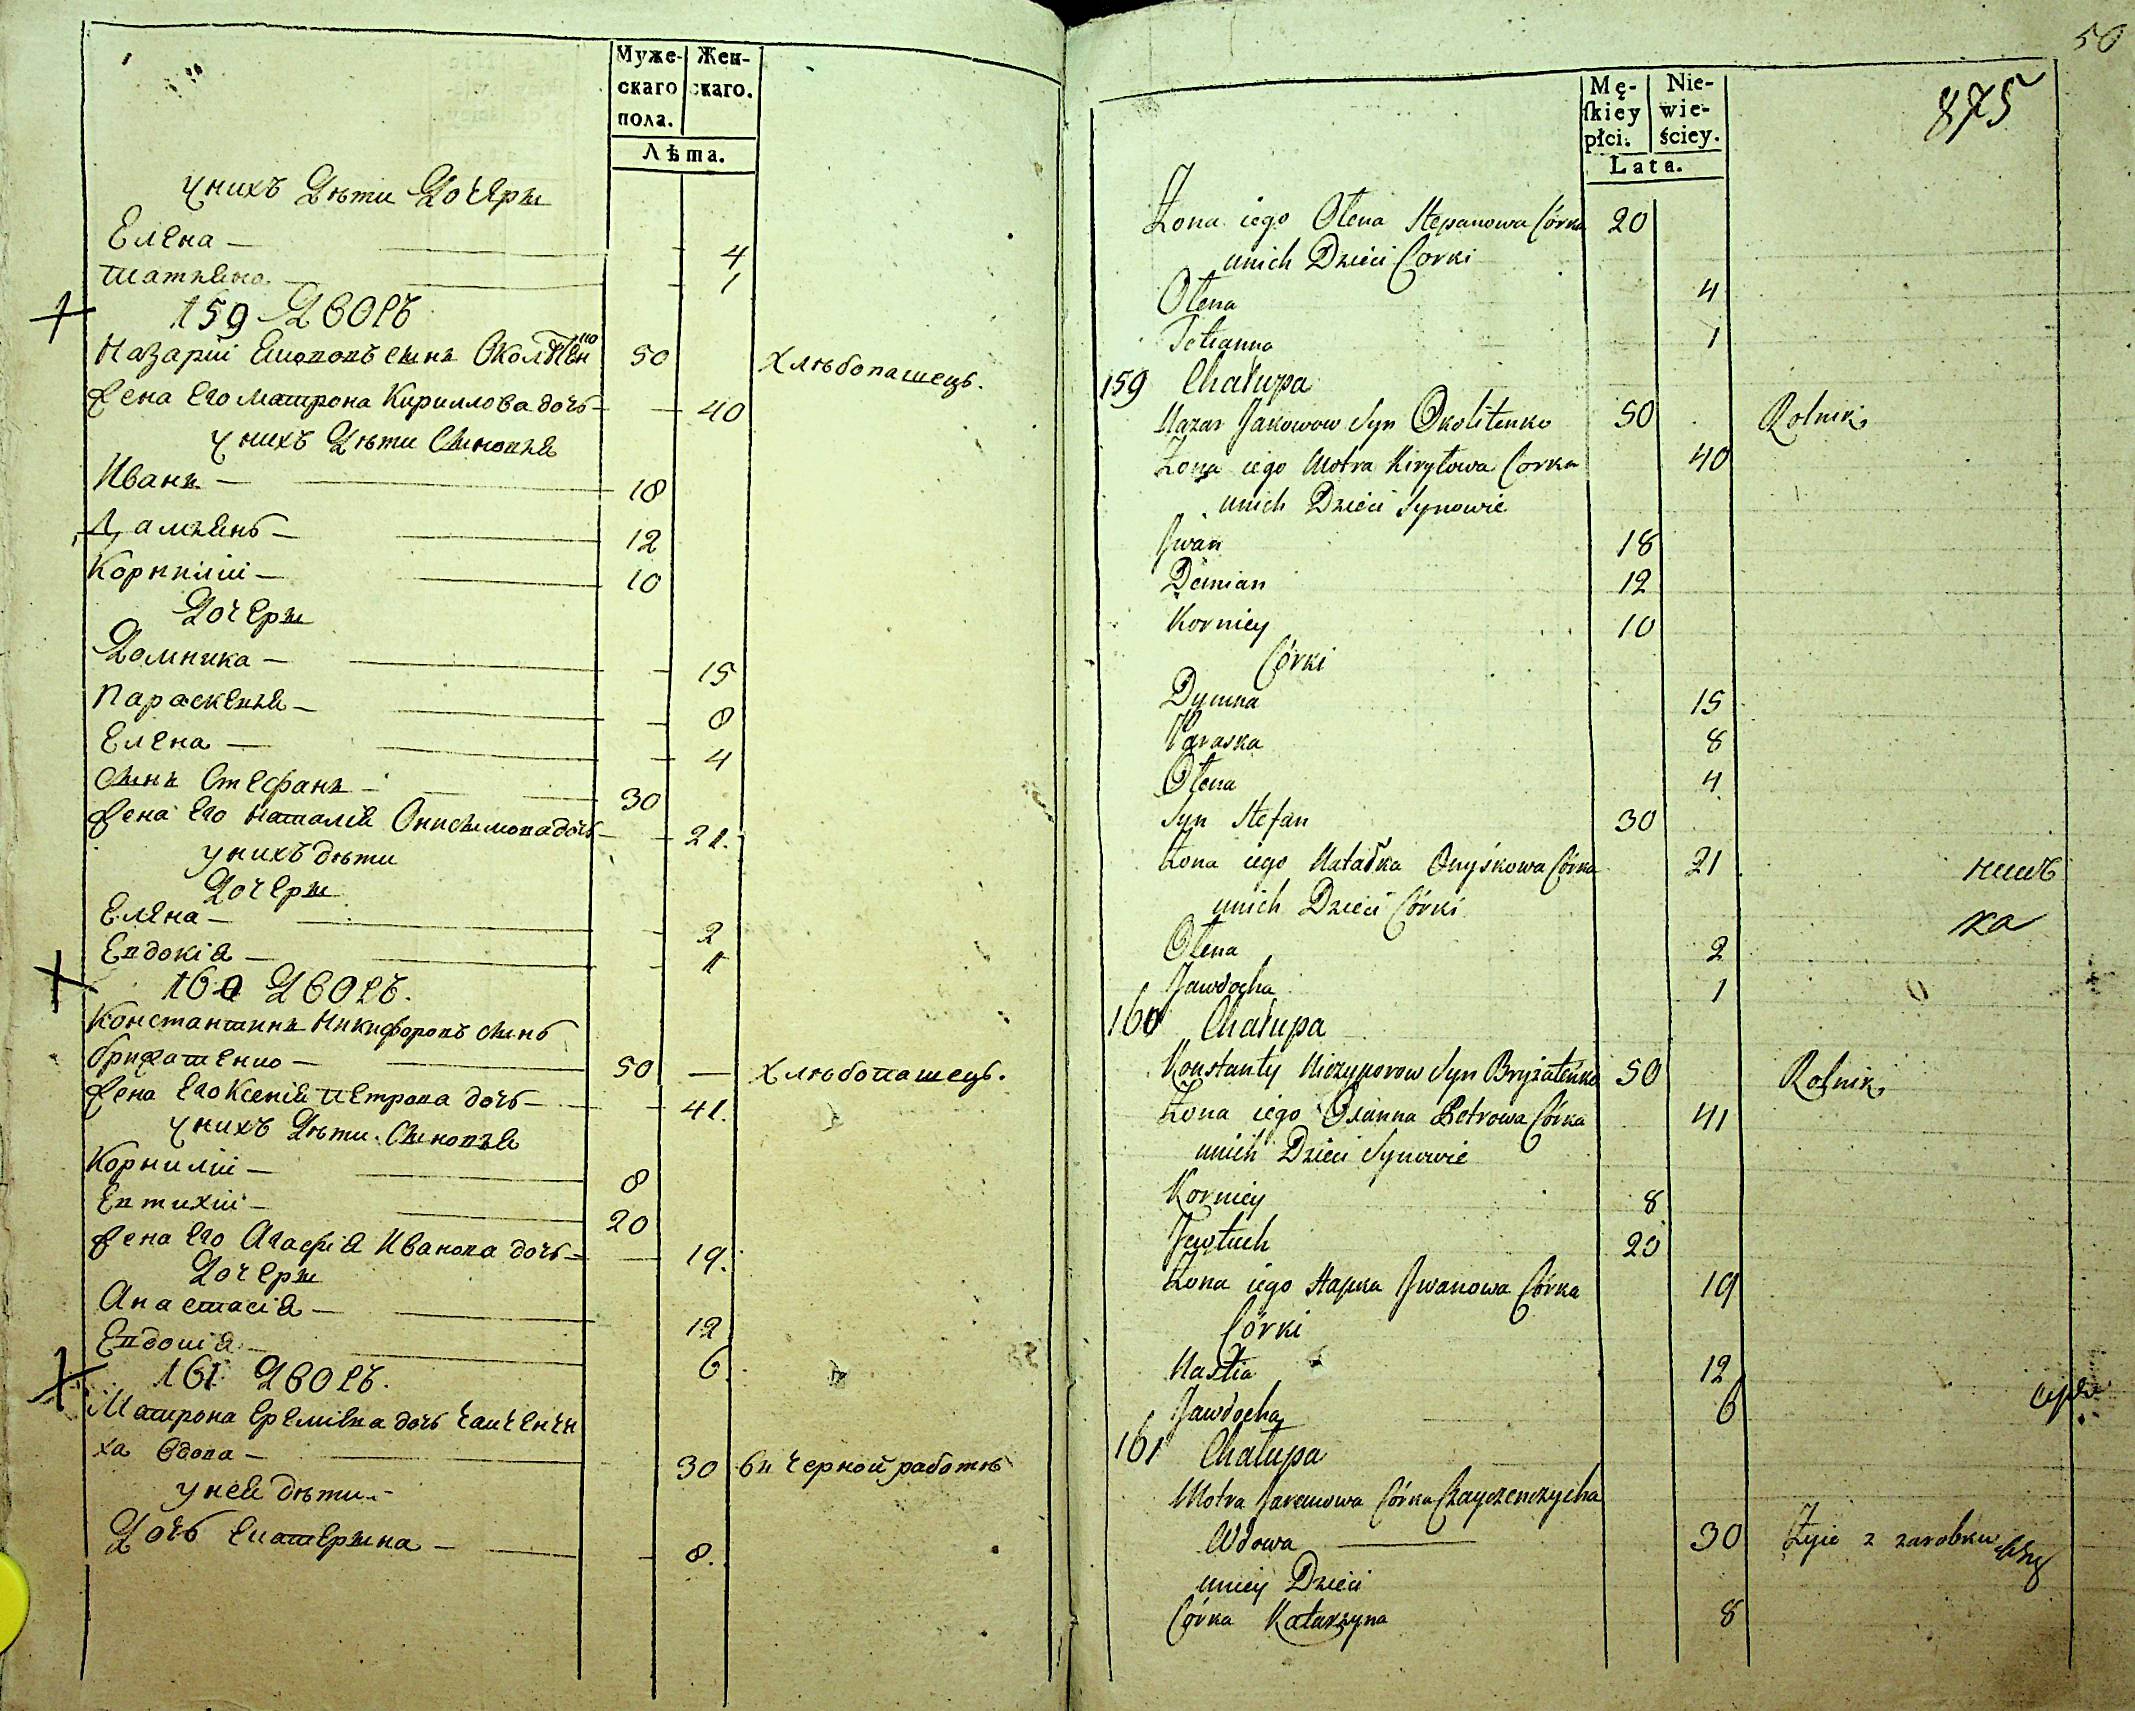 Муже- Жен-
скаго скаго.
пола.
Лѣта.
унихъ Дѣти Дочеры
Елена — 4
Татіяна — 1
159 Дворъ
Назарій Якововъ сынъ Околѣтен
ко 50 Хлѣбопашецъ.
Жена Его Матрона Кириллова дочь — 40
унихъ Дѣти Сыновья
Иванъ — 18
Даміянъ — 12
Корнилій — 10
Дочеры
Домника — 15
Параскевія — 8
Елена — 4
Сынъ Стефанъ — 30
Жена Его Наталія Онисимова дочь — 21.
унихъ дѣти
Дочеры
Елена — 2
Евдокія — 1
160 Дворъ.
Константинъ Никифоровъ сынъ
Брижатенко — 50 — Хлѣбопашецъ.
Жена Его Ксенія Петрова дочь — 41.
унихъ Дѣти Сыновья
Корнилій — 8
Евтихій — 20
Жена Его Агафія Иванова дочь — 19.
Дочеры
Анастасія — 12
Евдокія — 6.
161 Дворъ.
Матрона Еремѣева дочь Чайченчи
ха вдова — 30 въ черной работѣ
уней дѣти —
Дочь Екатерына — 8.
50
875
Mę- Nie-
skiey wie-
płci. ściey.
Lata.
Żona iego Ołena Stepanowa Córka 20
unich Dzieci Corki
Ołena 4
Tetianna 1
159 Chałupa
Nazar Jakowow Syn Okolitenko 50 Rolnik
Żona iego Motra Kiryłowa Corka 40
unich Dzieci Synowie
Jwan 18
Demian 12
Korniey 10
Córki
Dymna 15
Paraska 8
Ołena 4
Syn Stefan 30
Żona iego Natałka Onyśkowa Córka 21
unich Dzieci Córki
Ołena 2
Jawdocha 1
160 Chałupa
Konstanty Niczyporow Syn Bryżatenko 50 Rolnik
Żona iego Oxianna Petrowa Córka 41
unich Dzieci Synowie
Korniey 8
Jewtuch 20
Żona iego Hapka Jwanowa Córka 19
Córki
Nastia 12
Jawdocha 6
161 Chałupa
Motra Jaremowa Córka Czayczenczycha
Wdowa — 30 Żyie z zarobku
uniey Dzieci
Córka Katarzyna 8